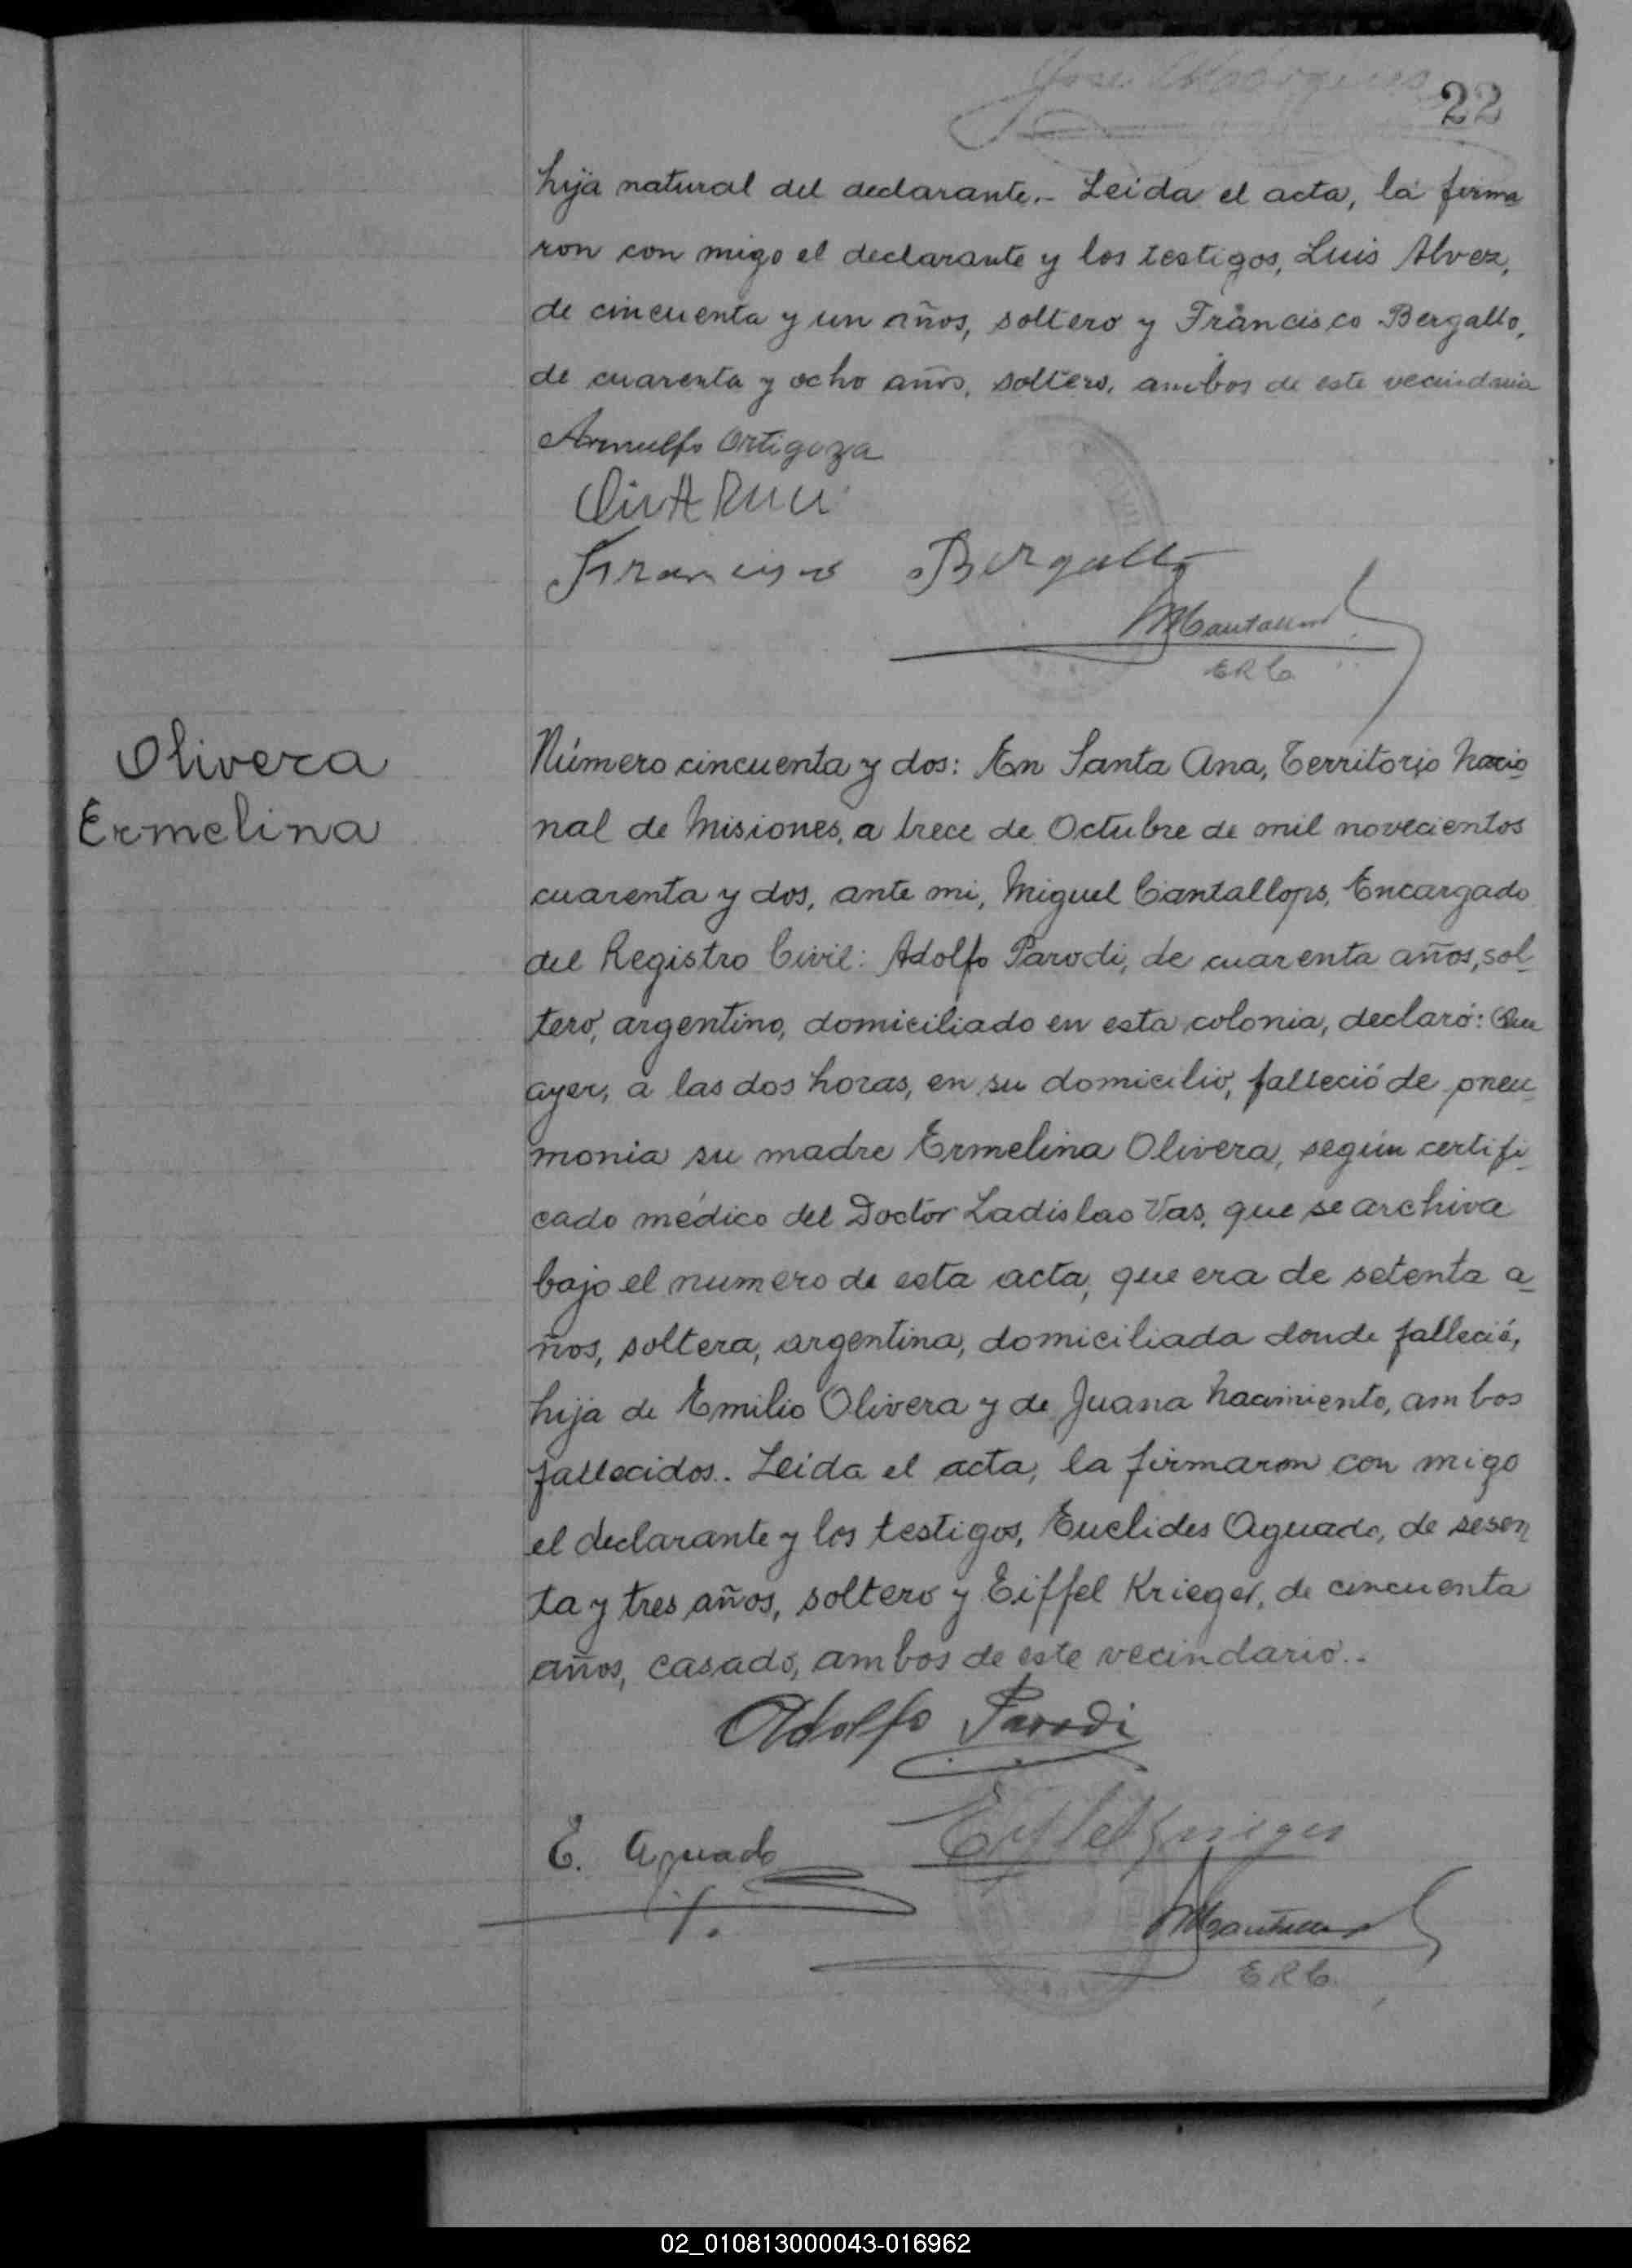 22
hija natural del declarante.- Leida el acta, la firma
ron con migo el declarante y los testigos, Luis Alvez,
de cincuenta y un años, soltero y Francisco Bergallo,
de cuarenta y ocho años, soltero, ambos de este vecindario
Arnulfo Ortigoza
Francisco Bergallo
E R C.
Olivera
Ermelina
Número cincuenta y dos: En Santa Ana, Territorio Nacio
nal de Misiones, a trece de Octubre de mil novecientos
cuarenta y dos, ante mi, Miguel Cantallops, Encargado
del Registro Civil: Adolfo Parodi, de cuarenta años, sol-
tero, argentino, domiciliado en esta colonia, declaró: Que
ayer, a las dos horas, en su domicilio, falleció de pneu-
monia su madre Ermelina Olivera, según certifi-
cado médico del Doctor Ladislao Vas, que se archiva
bajo el numero de esta acta, que era de setenta a-
ños, soltera, argentina, domiciliada donde falleció,
hija de Emilio Olivera y de Juana Nacimiento, ambos
fallecidos.. Leida el acta, la firmaron con migo
el declarante y los testigos, Euclides Aguado, de sesen
ta y tres años, soltero y Eiffel Krieger, de cincuenta
años, casado, ambos de este vecindario..
Adolfo Parodi
E. Aguado Eiffel Krieger
E R C.
02_010813000043-016962